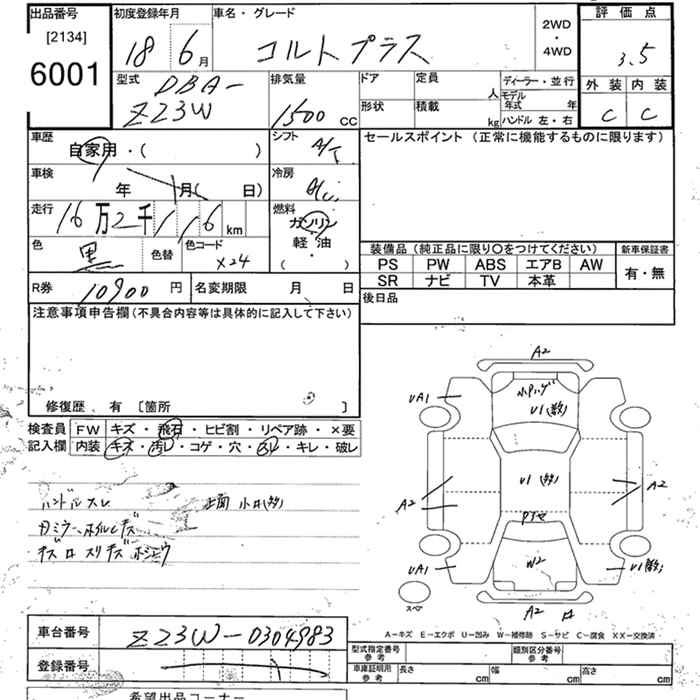 出品番号
[2134]
6001
初度登録年月
18 6月
車名・グレード
コルトプラス
2WD
・
4WD
評価点
3.5
外装 内装
C C
型式
DBA-
ZZ3W
排気量
1500 CC
ドア
定員
人
形状
積載
kg
ディーラー・並行
モデル
年式 年
ハンドル 左・右
車歴
自家用・( )
シフト
A/T
セールスポイント(正常に機能するものに限ります)
車検
年 月( 日)
冷房
走行
16万2千116km
燃料
ガソリン
軽・油
( ・ )
色
黒
色替
色コード
X24
装備品(純正品に限り〇をつけてください)
新車保証書
PS PW ABS エアB AW
SR ナビ TV 本革
有・無
R券 10900 円
名変期限 月 日
後日品
注意事項申告欄(不具合内容等は具体的に記入して下さい)
修復歴 有 [箇所 ]
検査員
記入欄
FW キズ・飛石・ヒビ割・リペア跡・×要
内装 キズ・汚レ・コゲ・穴・スレ・キレ・破レ
ハンドルスレ
上面 小キズ(多)
A2
UA1
U1(多)
U1(多)
A2
A2
W2
UA1
U1(多)
スペア
A2
A-キズ E-エクボ U-凹み W-補修跡 S-サビ C-腐食 XX-交換済
車台番号
ZZ3W-0304983
登録番号
型式指定番号
参考
類別区分番号
参考
車庫証明用
参考
長さ cm
幅 cm
高さ cm
希望出品コーナー